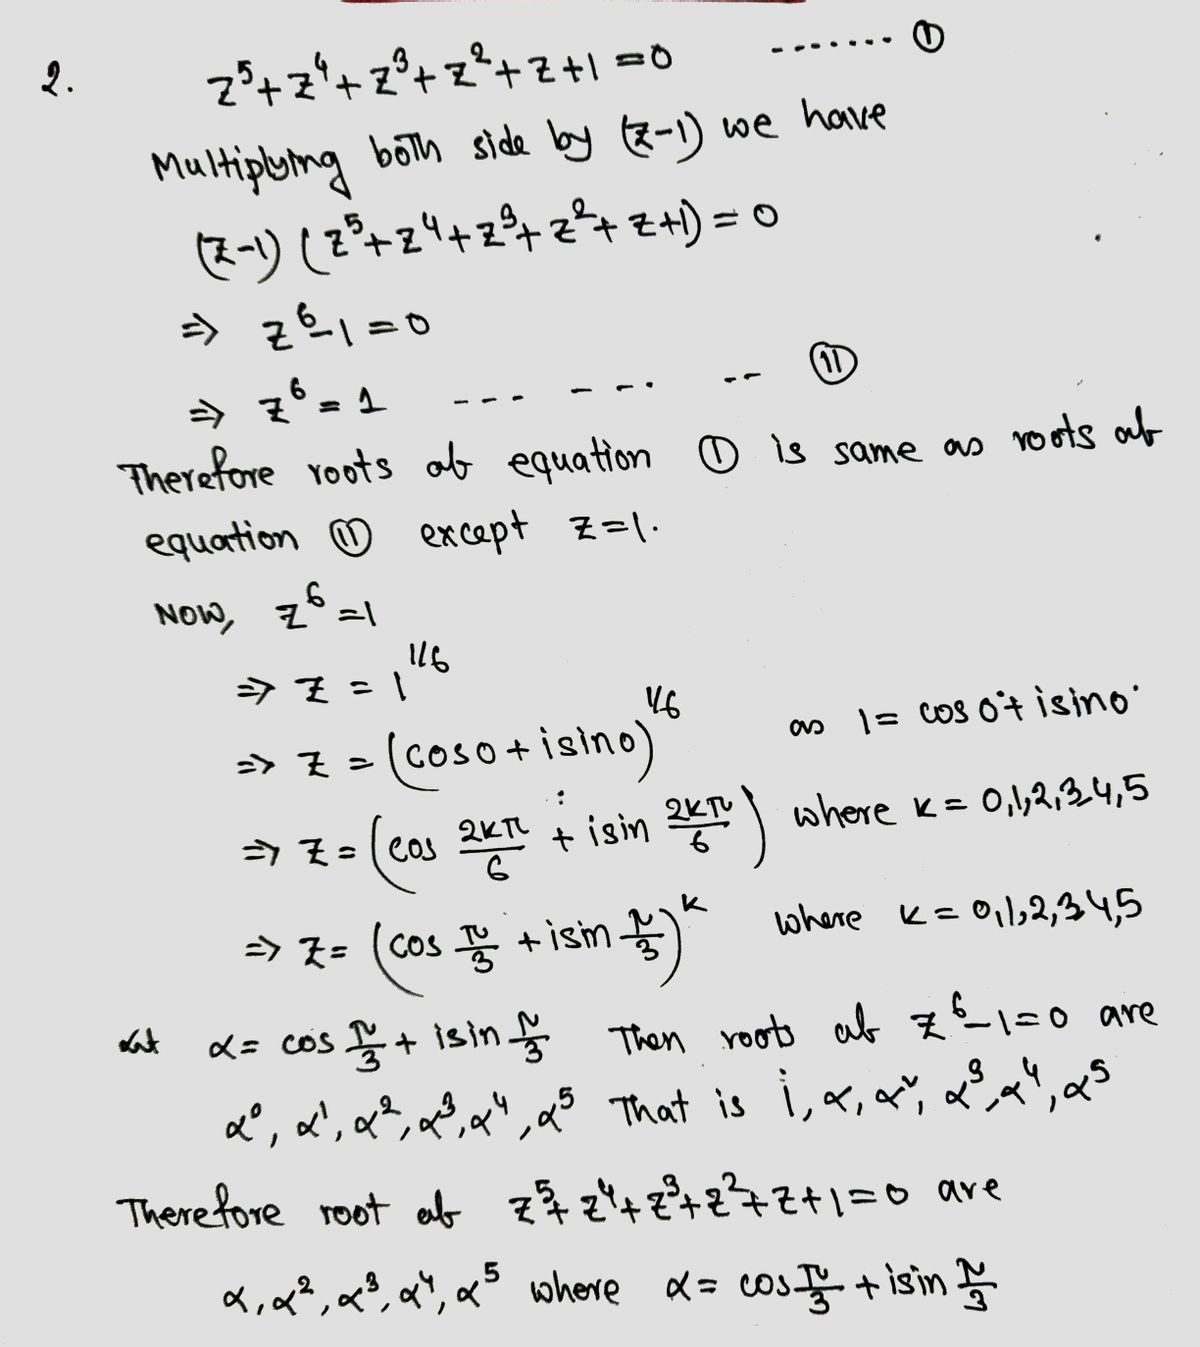 2. z⁵+z⁴+z³+z²+z+1=0 ....... ①
Multiplying both side by (z-1) we have
(z-1) (z⁵+z⁴+z³+z²+z+1) = 0
⇒ z⁶-1=0
⇒ z⁶ = 1 --- - -. -- ⑪
Therefore roots of equation ① is same as roots of
equation ⑪ except z=1.
Now, z⁶=1
⇒ z = 1^{1/6}
⇒ z = (cos0+isin0)^{1/6} as 1= cos 0°+ isin0°
⇒ z = (cos 2kπ/6 + isin 2kπ/6) where k= 0,1,2,3,4,5
⇒ z= (cos π/3 + isin π/3)^k where k= 0,1,2,3,4,5
Let α= cos π/3 + isin π/3 Then roots of z⁶-1=0 are
α⁰, α¹, α², α³, α⁴, α⁵ That is 1, α, α², α³, α⁴, α⁵
Therefore root of z⁵+z⁴+z³+z²+z+1=0 are
α, α², α³, α⁴, α⁵ where α= cos π/3 + isin π/3